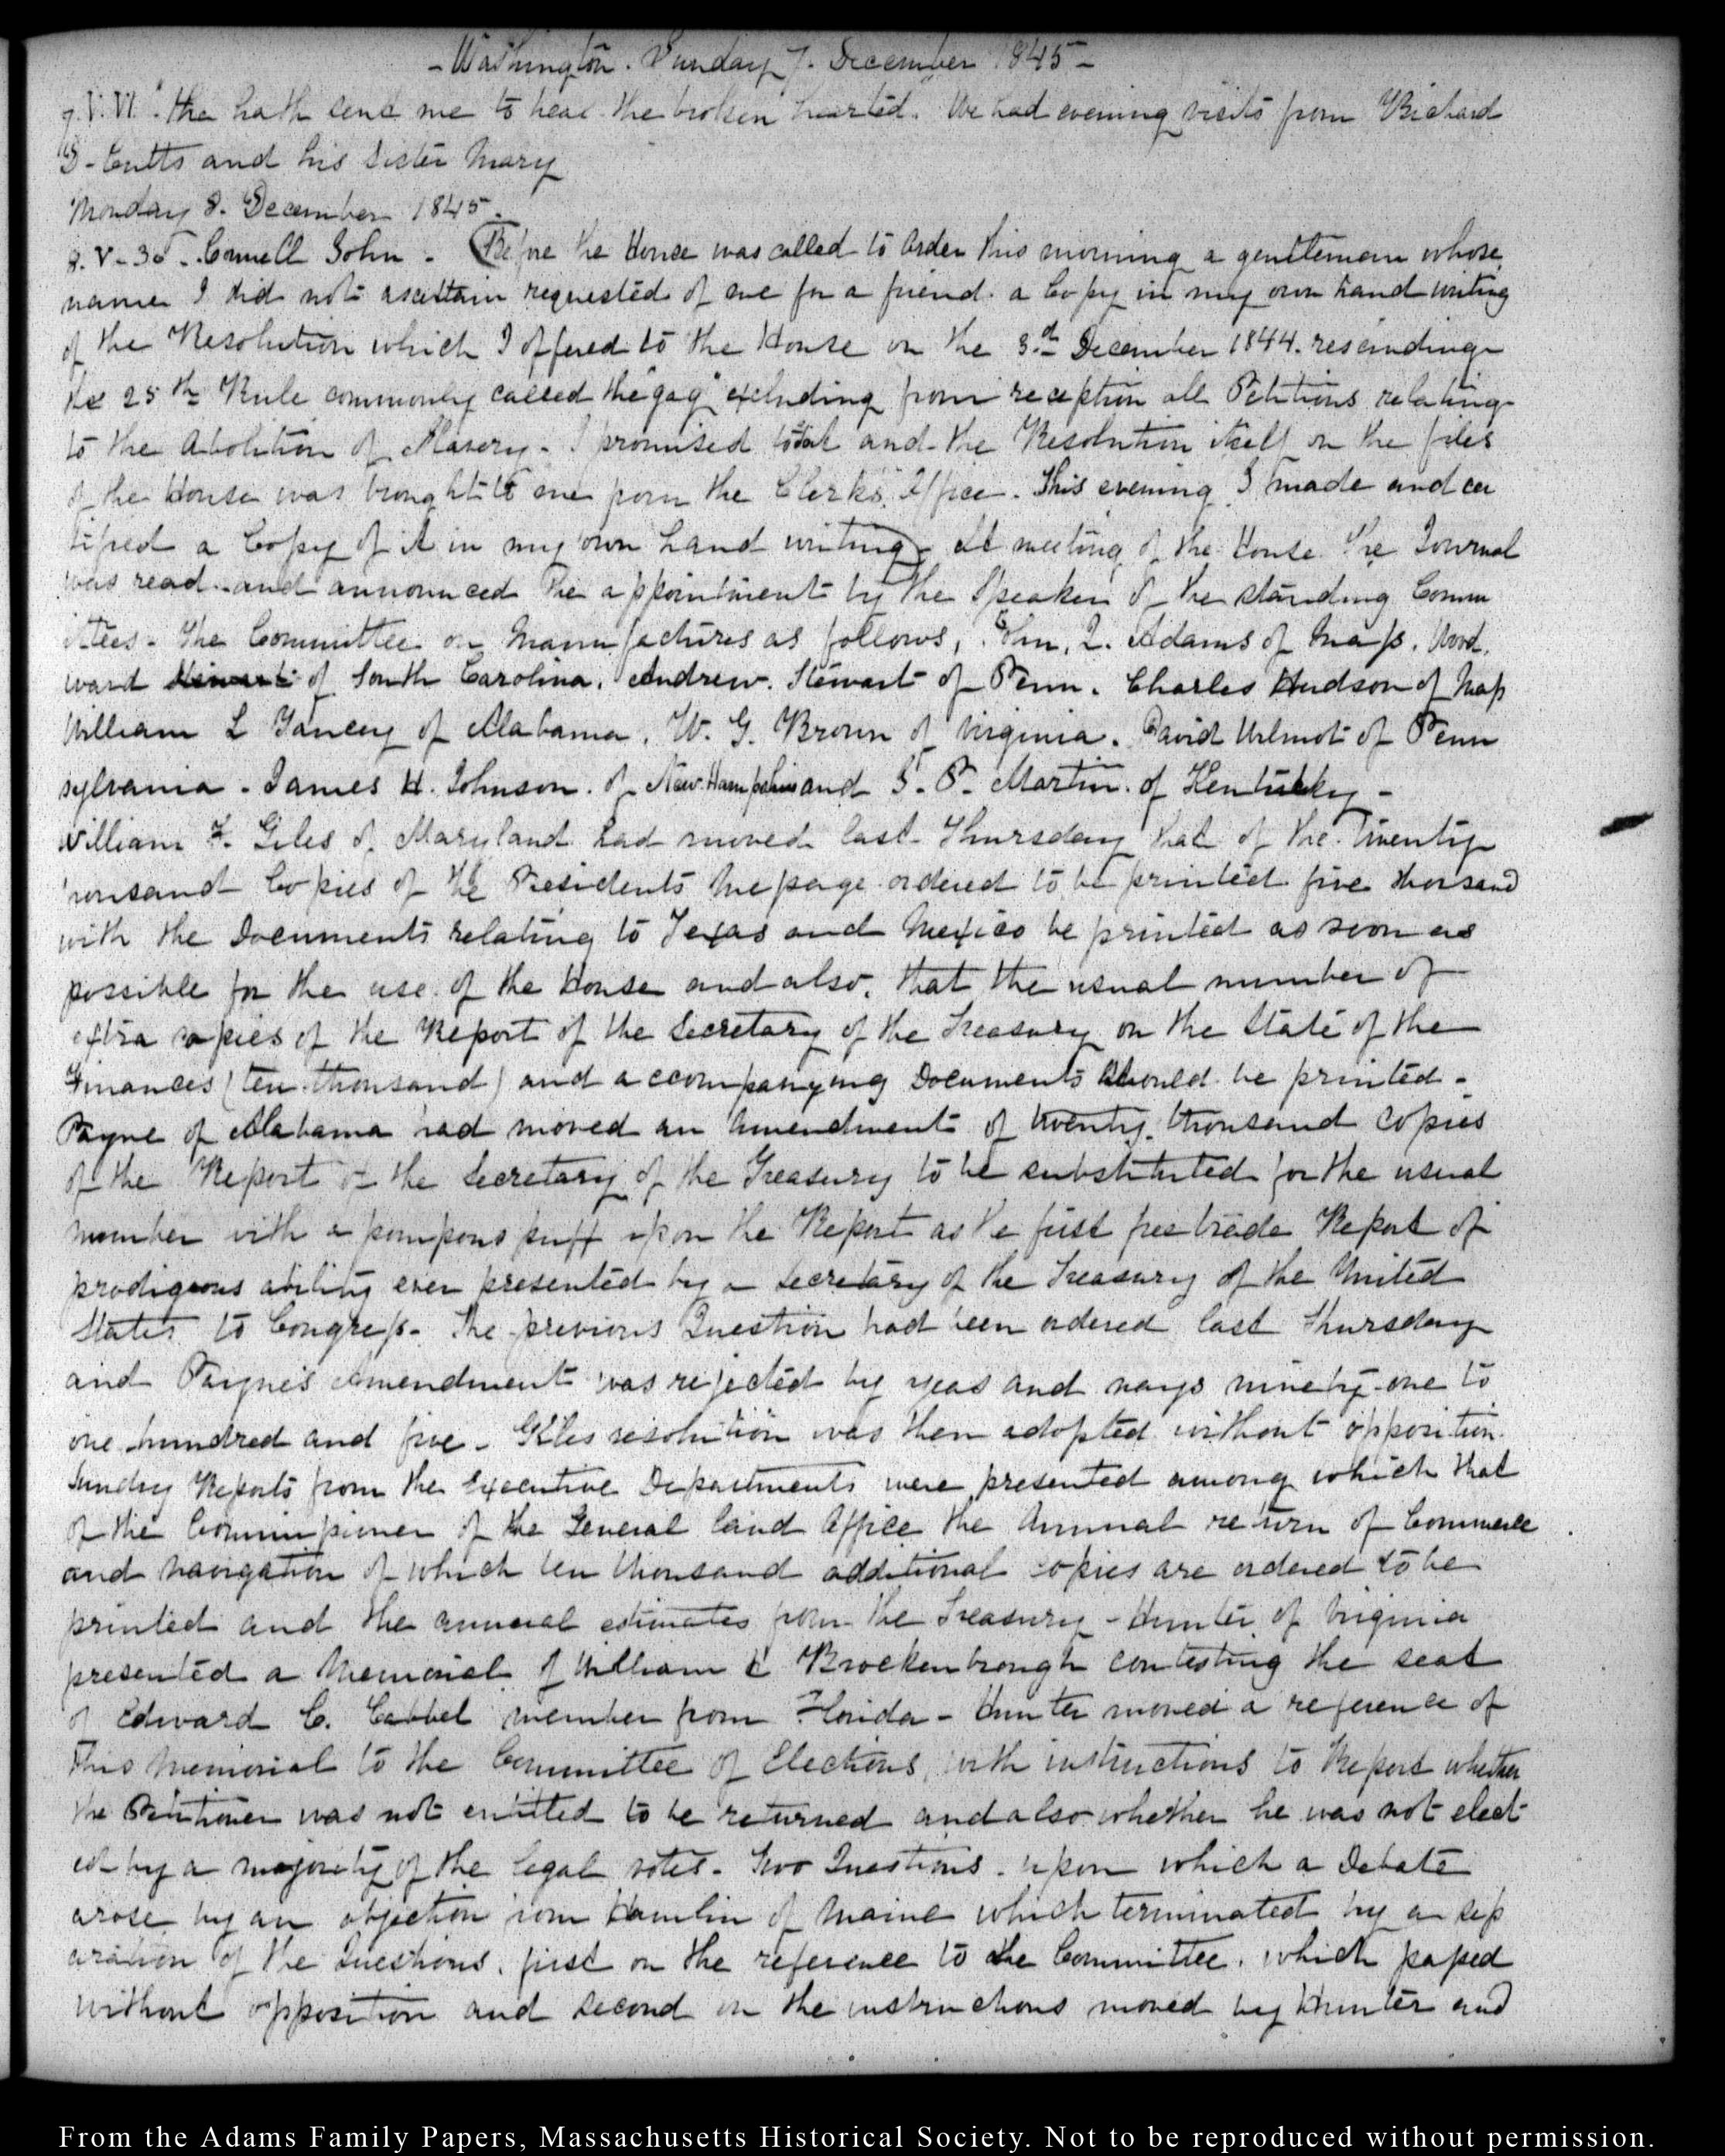 - Washington. Sunday 7. December 1845 -
7. V. VI. the hath send me to heal the broken hearted. We had evening visits from Richard
D- Cutts and his sister Mary
Monday 8. December 1845.
8. V-30. Connell John - (Before the House was called to Order this morning a gentleman whose
name I did not ascertain requested of me for a friend. a Copy in my own hand writing
of the Resolution which I offered to the House on the 3.d December 1844. rescinding
the 25th Rule commonly called the "gag" excluding from reception all Petitions relating
to the Abolition of Slavery - I promised it and the Resolution itself on the files
of the House was brought to me from the Clerk's Office. This evening I made and cer
tified a Copy of it in my own hand writing) At meeting of the House the Journal
was read and announced the appointment by the Speaker of the standing Comm
ittees - The Committee on Manufactures as follows, John. Q. Adams of Mass. Wood.
ward of South Carolina. Andrew. Stewart of Penn. Charles Hudson of Mass
William L Yancey of Alabama. W. G. Brown of Virginia. David Wilmot of Penn
sylvania - James H. Johnson. of New Hampshire and J. P. Martin. of Kentucky -
William F. Giles of Maryland had moved last Thursday that of the twenty
thousand Copies of the Presidents Message ordered to be printed five thousand
with the Documents relating to Texas and Mexico be printed as soon as
possible for the use of the House and also, that the usual number of
extra copies of the Report of the Secretary of the Treasury on the State of the
Finances (ten thousand) and accompanying Documents should be printed -
Payne of Alabama had moved an Amendment of twenty thousand copies
of the Report of the Secretary of the Treasury to be substituted for the usual
number with a pompous puff upon the Report as the first free trade Report of
prodigeous ability ever presented by a Secretary of the Treasury of the United
States to Congress - The previous Question had been ordered last Thursday
and Payne's Amendment was rejected by yeas and nays ninety-one to
one hundred and five - Giles resolution was then adopted without opposition.
Sundry Reports from the Executive Departments were presented among which that
of the Commissioner of the General Land Office the Annual return of Commerce
and navigation of which ten thousand additional copies are ordered to be
printed and the annual estimates from the Treasury - Hunter of Virginia
presented a Memorial of William C Brockenbrough contesting the seat
of Edward C. Cabbel member from Florida - Hunter moved a reference of
this Memorial to the Committee of Elections, with instructions to Report whether
the Petitioner was not entitled to be returned and also whether he was not elect
ed by a majority of the legal votes - Two Questions. upon which a Debate
arose by an objection from Hamlin of Maine which terminated by a sep
aration of the Questions, first on the reference to the Committee. which passed
without opposition and second on the instructions moved by Hunter and
From the Adams Family Papers, Massachusetts Historical Society. Not to be reproduced without permission.